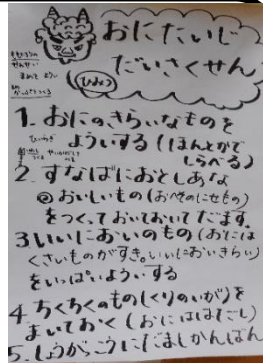 おにたいじ
だいさくせん
ひみつ
1. おにのきらいなものを
ひいらぎ
よういする(ほんとかで
しらべる)
2. すなばにおとしあな
◎おいしいもの(おべそのにせもの)
をつくっておいておいてだます。
3. いいにおいのもの(おには
くさいものがすき。いいにおいきらい)
をいっぱいよういする
4. ちくちくのもの(くりのいが)を
まいておく(おにははだし)
5. しょうがっこうにだましかんばん